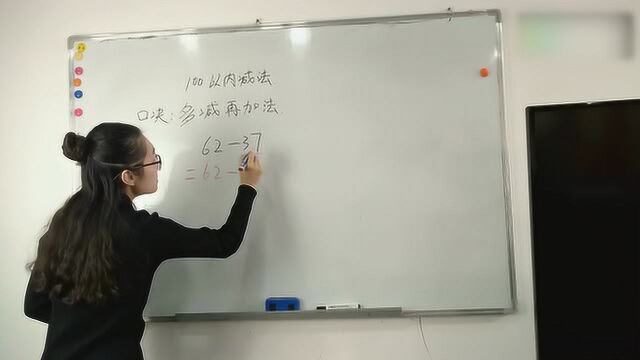 100以内减法
口决:多减再加法
62-37
=62-